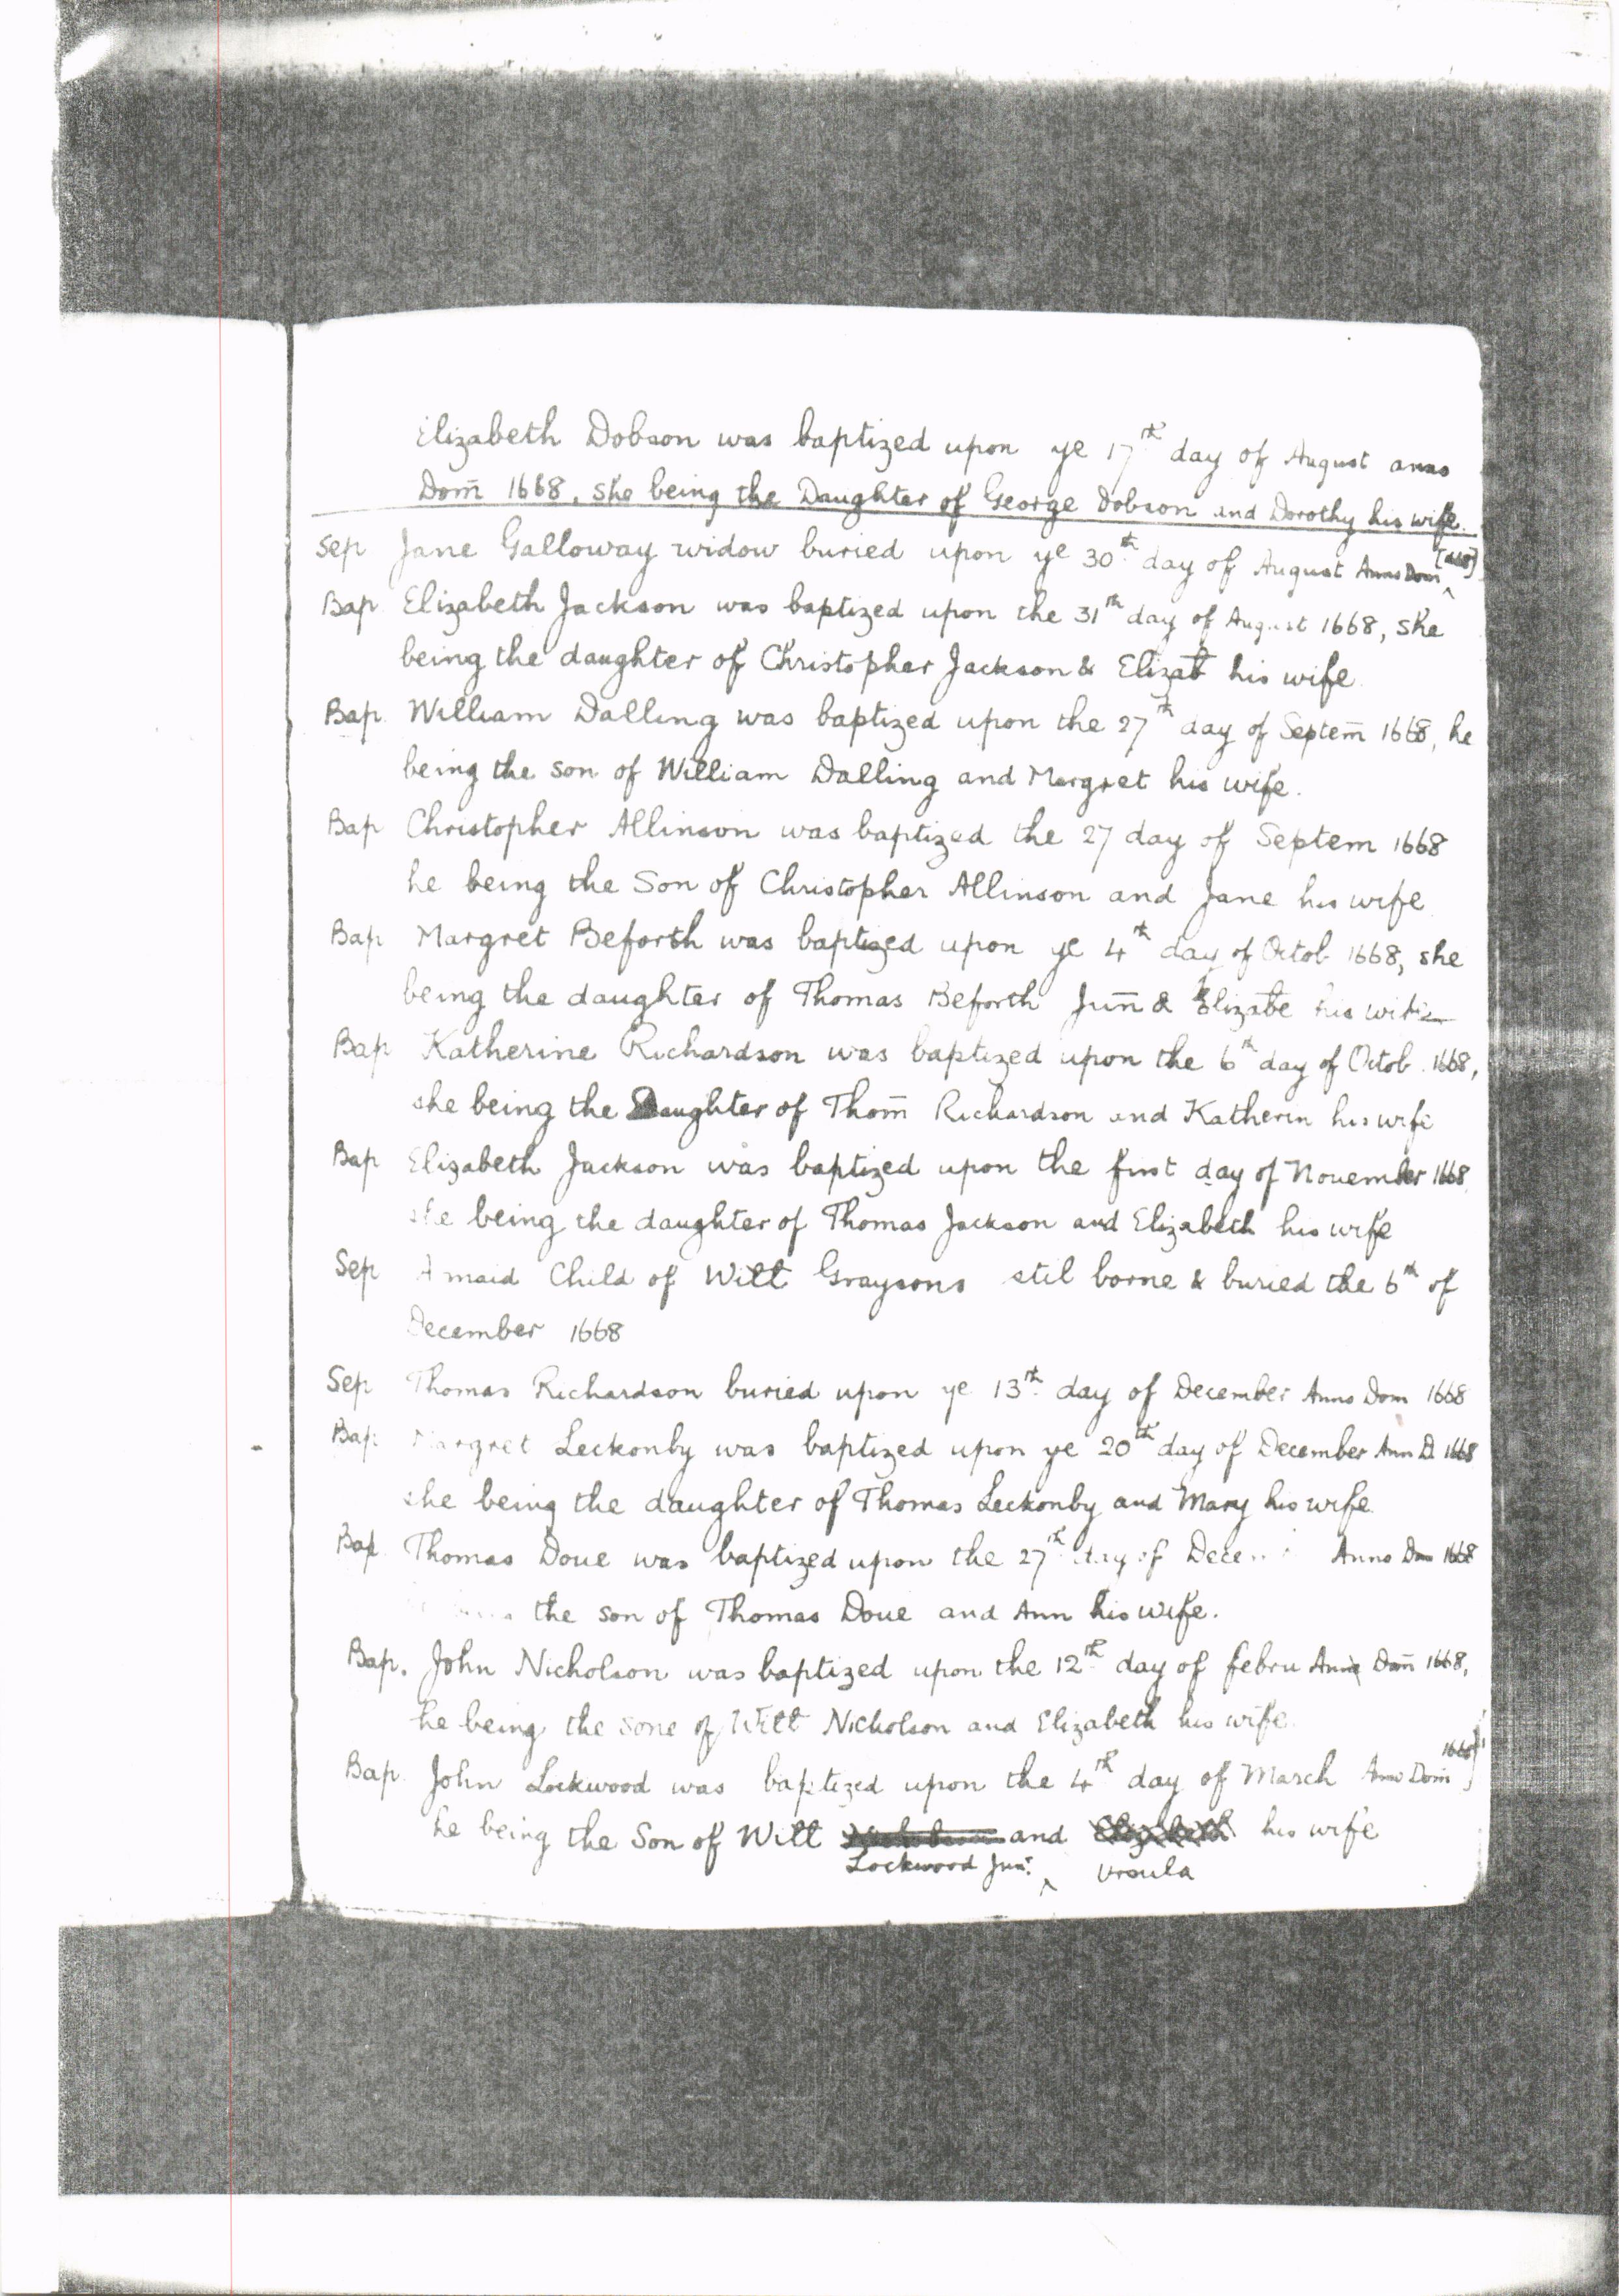 Elizabeth Dobson was baptized upon ye 17th day of August anno
Dom̄ 1668, she being the Daughter of George Dobson and Dorothy his wife.
Sep Jane Galloway widow buried upon ye 30th day of August Anno Dom [1668]
Bap Elizabeth Jackson was baptized upon the 31th day of August 1668, she
being the daughter of Christopher Jackson & Elizab his wife.
Bap. William Dalling was baptized upon the 27th day of Septem̄ 1668, he
being the son of William Dalling and Margret his wife.
Bap Christopher Allinson was baptized the 27 day of Septem 1668
he being the Son of Christopher Allinson and Jane his wife
Bap Margret Beforth was baptized upon ye 4th day of Octob 1668, she
being the daughter of Thomas Beforth Jun̄ & Elizabe his wife
Bap Katherine Richardson was baptized upon the 6th day of Octob. 1668,
she being the Daughter of Thom̄ Richardson and Katherin his wife
Bap Elizabeth Jackson was baptized upon the first day of Nouember 1668
she being the daughter of Thomas Jackson and Elizabeth his wife
Sep A maid Child of Will Graysons stil borne & buried the 6th of
December 1668
Sep Thomas Richardson buried upon ye 13th day of December Anno Dom 1668
Bap: Margret Leckonby was baptized upon ye 20th day of December Ann D 1668
she being the daughter of Thomas Leckonby and Mary his wife.
Bap Thomas Doue was baptized upon the 27th day of Decem Anno Dom 1668
the son of Thomas Doue and Ann his wife.
Bap. John Nicholson was baptized upon the 12th day of febru Anno Dom̄ 1668,
he being the sone of Will Nicholson and Elizabeth his wife.
Bap. John Lockwood was baptized upon the 4th day of March Anno Dom̄ 1668]
he being the Son of Will Nicholson and Elizabeth his wife
Lockwood Jun: ^ Ursula